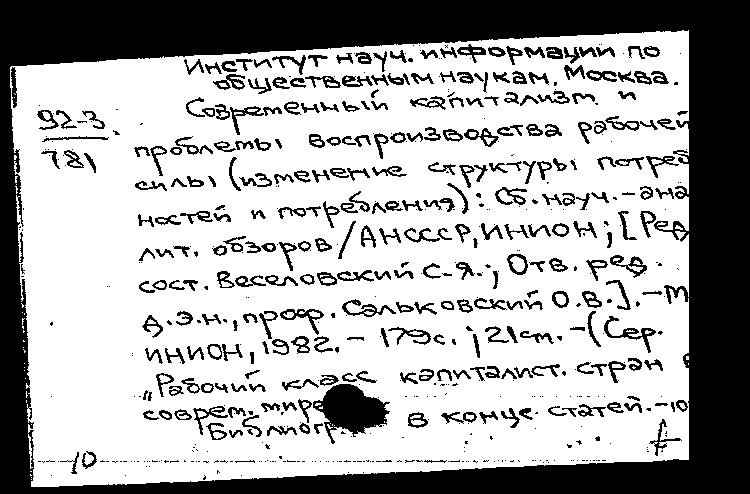 Институт науч. информации по
общественным наукам. Москва.
Современный капитализм и
92-3
781
проблемы воспроизводства рабочей
силы (изменение структуры потреб
ностей и потребления): Сб. науч.-ана
лит. обзоров / АНСССР, ИНИОН; [Ред
сост. Веселовский С.Я.; Отв. ред.
д.э.н., проф. Сальковский О.В.].-М
ИНИОН, 1982. - 179с.; 21см. -(Сер.
"Рабочий класс капиталист. стран в
соврем. мире
Библиогр. в конце статей.-10
10